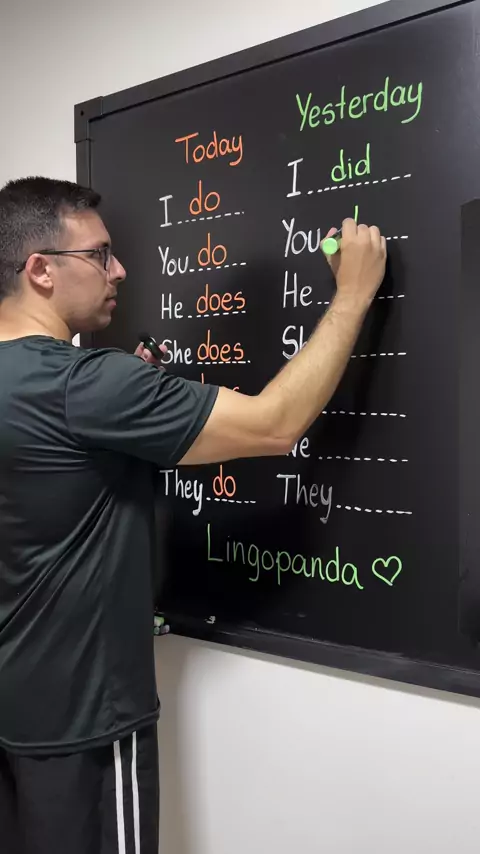 Today
I do
You do
He does
She does
They do
Yesterday
I did
You
He
They
Lingopanda ♡